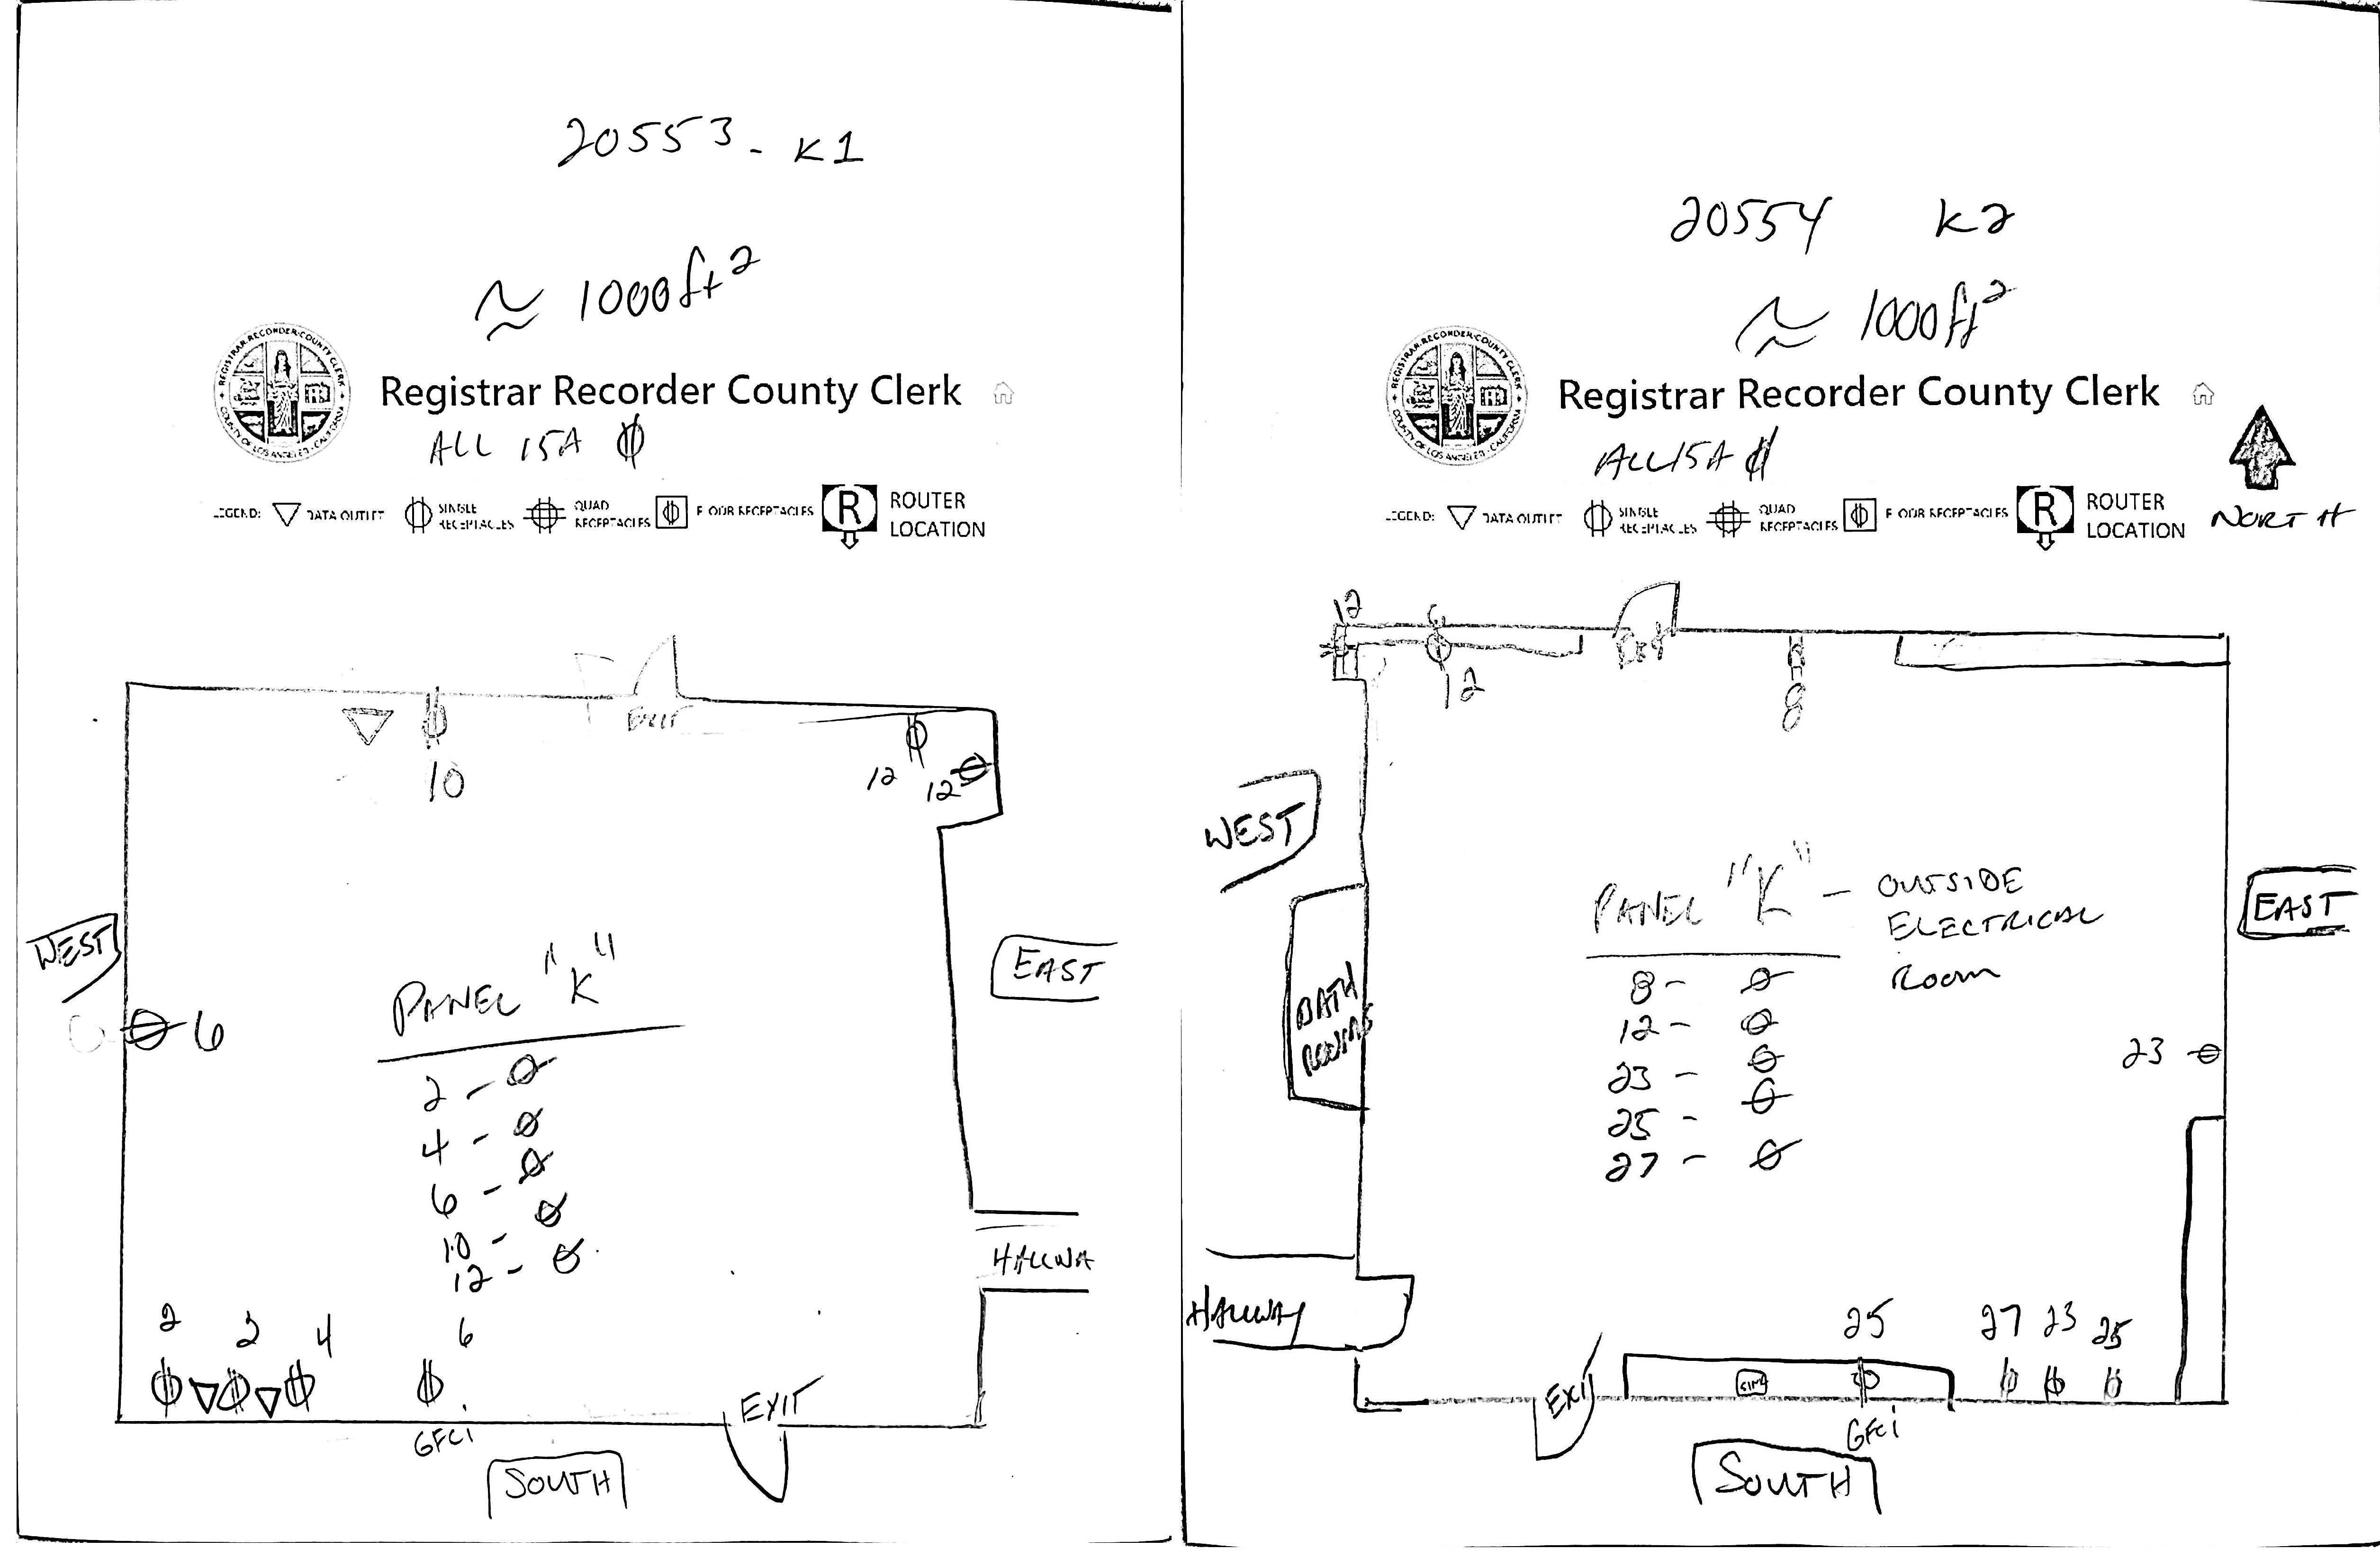 20553 - K1
≈ 1000ft²
REGISTRAR-RECORDER/COUNTY CLERK
COUNTY OF LOS ANGELES - CALIFORNIA
Registrar Recorder County Clerk
ALL 15A
LEGEND: DATA OUTLET SINGLE RECEPTACLES QUAD RECEPTACLES FLOOR RECEPTACLES R ROUTER LOCATION
EXIT
10
12
12
WEST
6
EAST
PANEL "K"
2 -
4 -
6 -
10 -
12 -
HALLWA
2
2
4
6
GFCi
EXIT
SOUTH
20554 K2
≈ 1000ft²
REGISTRAR-RECORDER/COUNTY CLERK
COUNTY OF LOS ANGELES - CALIFORNIA
Registrar Recorder County Clerk
ALL 15A
LEGEND: DATA OUTLET SINGLE RECEPTACLES QUAD RECEPTACLES FLOOR RECEPTACLES R ROUTER LOCATION
NORTH
12
12
8
WEST
PANEL "K" - OUTSIDE
ELECTRICAL
ROOM
EAST
8 -
12 -
23 -
25 -
27 -
BATH
23
HALLWAY
25
27
23
25
EXIT
SINK
GFCi
SOUTH